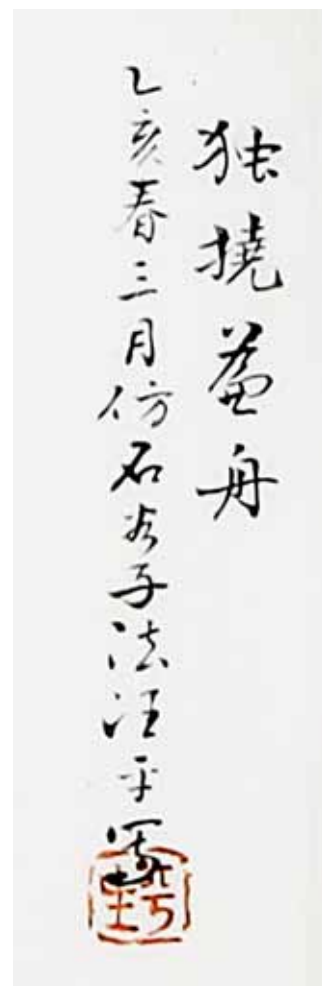 独挠盖舟
乙亥春三月仿石谷子法汪平寫